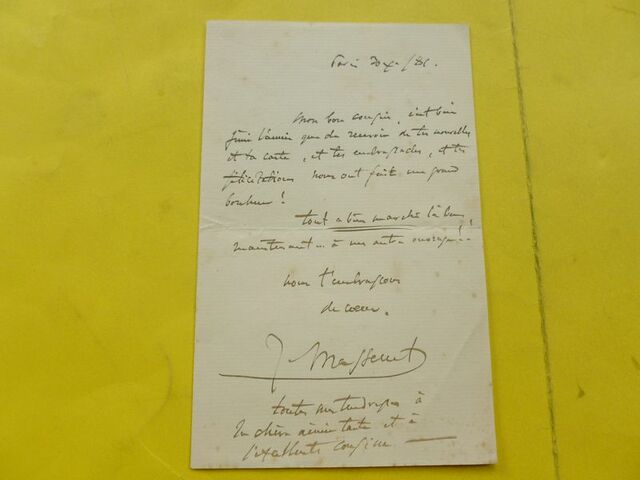 Paris 30 X /81.
Mon bon cousin, c'est bien
finir l'année que de recevoir de tes nouvelles
et ta carte, et tes embrassades, et tes
félicitations nous ont fait un grand
bonheur!
tout a bien marché là bas,
maintenant .. à un autre ouvrage!.
nous t'embrassons
de cœur.
J. Massenet
toutes nos tendresses à
ta chère tante et à
l'excellente cousine